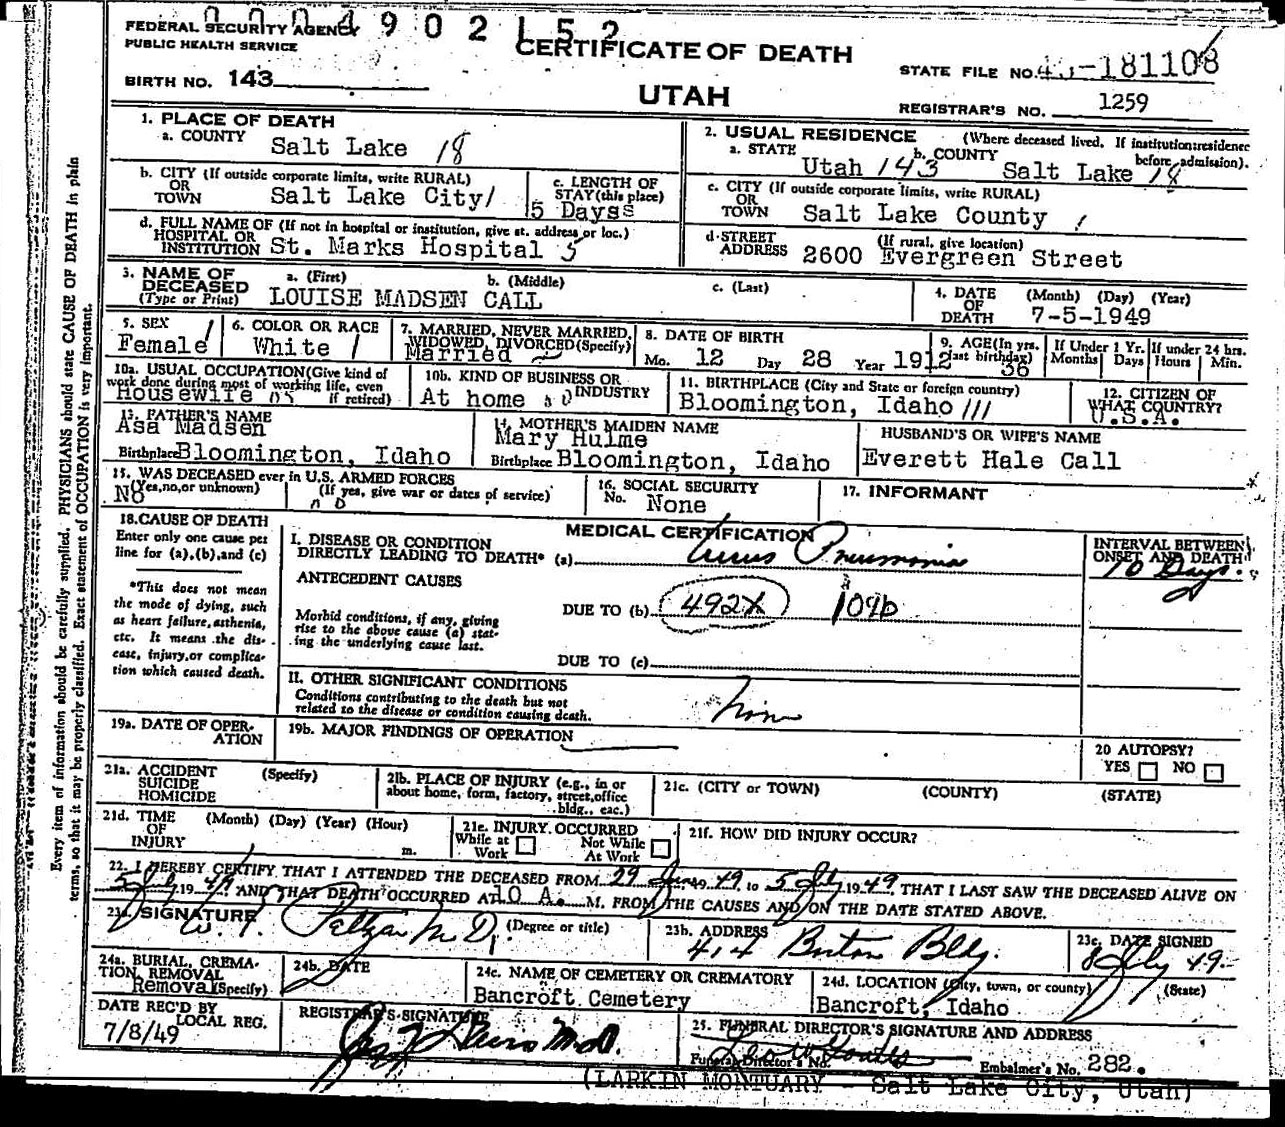 FEDERAL SECURITY AGENCY 4902152
PUBLIC HEALTH SERVICE
CERTIFICATE OF DEATH
STATE FILE NO. -181108
BIRTH NO. 143
UTAH
REGISTRAR'S NO. 1259
1. PLACE OF DEATH
a. COUNTY Salt Lake 18
2. USUAL RESIDENCE (Where deceased lived. If institution: residence before admission).
a. STATE Utah 143 b. COUNTY Salt Lake 18
b. CITY (If outside corporate limits, write RURAL)
OR
TOWN Salt Lake City/
c. LENGTH OF
STAY (this place)
5 Dayss
c. CITY (If outside corporate limits, write RURAL)
OR
TOWN Salt Lake County
d. FULL NAME OF (If not in hospital or institution, give st. address or loc.)
HOSPITAL OR
INSTITUTION St. Marks Hospital 5
d. STREET (If rural, give location)
ADDRESS 2600 Evergreen Street
3. NAME OF
DECEASED
(Type or Print)
a. (First) b. (Middle) c. (Last)
LOUISE MADSEN CALL
4. DATE (Month) (Day) (Year)
OF
DEATH 7-5-1949
5. SEX
Female
6. COLOR OR RACE
White
7. MARRIED, NEVER MARRIED,
WIDOWED, DIVORCED (Specify)
Married
8. DATE OF BIRTH
Mo. 12 Day 28 Year 1912
9. AGE (In yrs.
last birthday)
36
If Under 1 Yr.
Months Days
If under 24 hrs.
Hours Min.
10a. USUAL OCCUPATION (Give kind of
work done during most of working life, even
if retired)
Housewife
10b. KIND OF BUSINESS OR
INDUSTRY
At home
11. BIRTHPLACE (City and State or foreign country)
Bloomington, Idaho
12. CITIZEN OF
WHAT COUNTRY?
U.S.A.
13. FATHER'S NAME
Asa Madsen
Birthplace Bloomington, Idaho
14. MOTHER'S MAIDEN NAME
Mary Hulme
Birthplace Bloomington, Idaho
HUSBAND'S OR WIFE'S NAME
Everett Hale Call
15. WAS DECEASED ever in U.S. ARMED FORCES
(Yes, no, or unknown) (If yes, give war or dates of service)
No no
16. SOCIAL SECURITY
No. None
17. INFORMANT
18. CAUSE OF DEATH
Enter only one cause per
line for (a), (b), and (c)
*This does not mean
the mode of dying, such
as heart failure, asthenia,
etc. It means the dis-
ease, injury, or complica-
tion which caused death.
MEDICAL CERTIFICATION
I. DISEASE OR CONDITION
DIRECTLY LEADING TO DEATH* (a) Virus Pneumonia
ANTECEDENT CAUSES
Morbid conditions, if any, giving
rise to the above cause (a) stat-
ing the underlying cause last.
DUE TO (b) 492X 109b
DUE TO (c)
II. OTHER SIGNIFICANT CONDITIONS
Conditions contributing to the death but not
related to the disease or condition causing death.
None
INTERVAL BETWEEN
ONSET AND DEATH
10 Days.
19a. DATE OF OPER-
ATION
19b. MAJOR FINDINGS OF OPERATION
20 AUTOPSY?
YES NO
21a. ACCIDENT (Specify)
SUICIDE
HOMICIDE
21b. PLACE OF INJURY (e.g., in or
about home, form, factory, street, office
bldg., eac.)
21c. (CITY or TOWN) (COUNTY) (STATE)
21d. TIME (Month) (Day) (Year) (Hour)
OF
INJURY m.
21e. INJURY OCCURRED
While at Work Not While At Work
21f. HOW DID INJURY OCCUR?
22. I HEREBY CERTIFY THAT I ATTENDED THE DECEASED FROM 29 June 1949 to 5 July 1949, THAT I LAST SAW THE DECEASED ALIVE ON
5 July 1949 AND THAT DEATH OCCURRED AT 10 A. M. FROM THE CAUSES AND ON THE DATE STATED ABOVE.
23a. SIGNATURE (Degree or title)
M.D.
23b. ADDRESS
414 Boston Bldg.
23c. DATE SIGNED
8 July 49
24a. BURIAL, CREMA-
TION, REMOVAL
(Specify)
Removal
24b. DATE
24c. NAME OF CEMETERY OR CREMATORY
Bancroft Cemetery
24d. LOCATION (City, town, or county) (State)
Bancroft, Idaho
DATE REC'D BY
LOCAL REG.
7/8/49
REGISTRAR'S SIGNATURE
M.D.
25. FUNERAL DIRECTOR'S SIGNATURE AND ADDRESS
Funeral Director's No. Embalmer's No. 282.
(LARKIN MORTUARY - Salt Lake City, Utah)
Every item of information should be carefully supplied. PHYSICIANS should state CAUSE OF DEATH in plain
terms, so that it may be properly classified. Exact statement of OCCUPATION is very important.